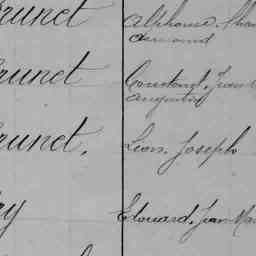 Brunet Alphonse
Armand
Brunet Constant, Jean
Augustin
Brunet, Léon, Joseph
Edouard, Jean Mar